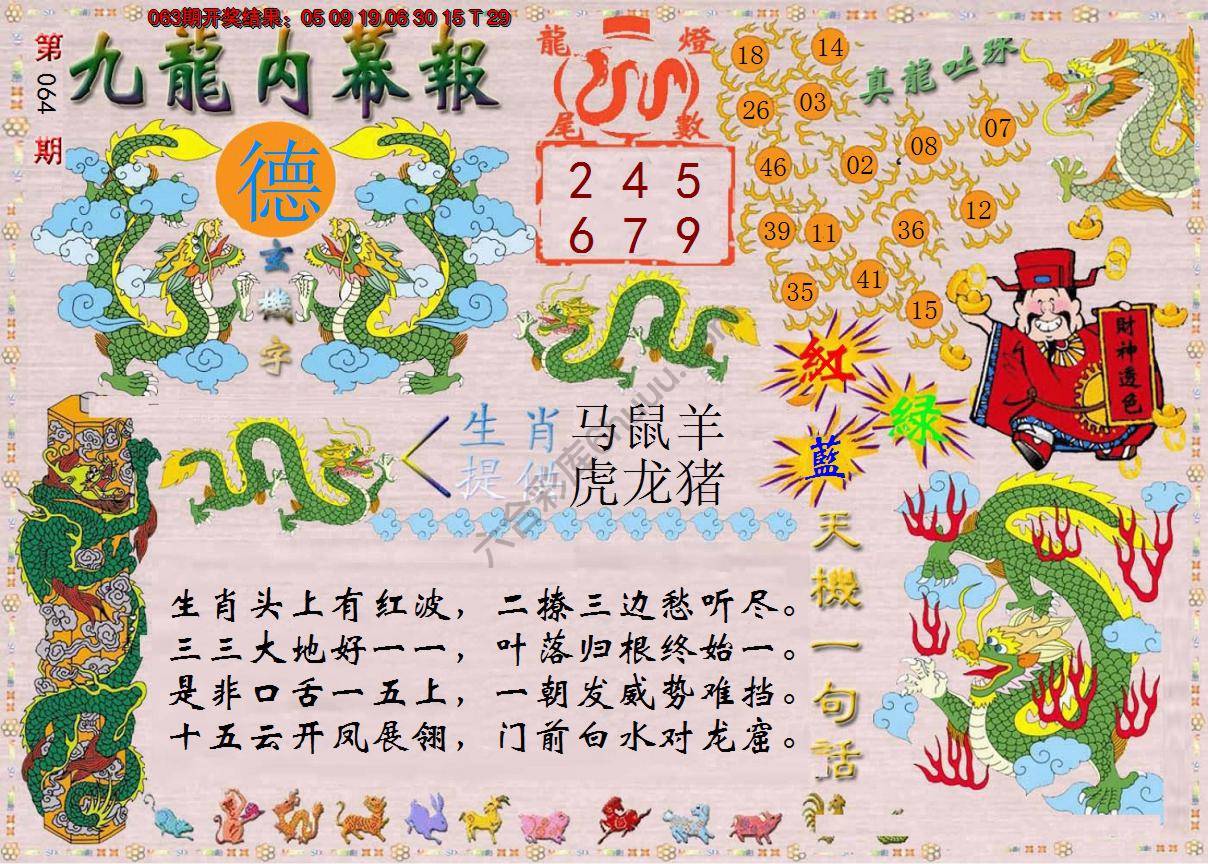 063期开奖结果：05 09 19 06 30 15 T 29
第064期
九龍内幕報
德
玄機字
龍燈
尾數
2 4 5
6 7 9
真龍吐珠
18 14
26 03
46 02 08 07
39 11 36 12
35 41 15
財神透色
紅
綠
藍
生肖 马鼠羊
提供 虎龙猪
天機一句話
生肖头上有红波，二撩三边愁听尽。
三三大地好一一，叶落归根终始一。
是非口舌一五上，一朝发威势难挡。
十五云开凤展翎，门前白水对龙窟。